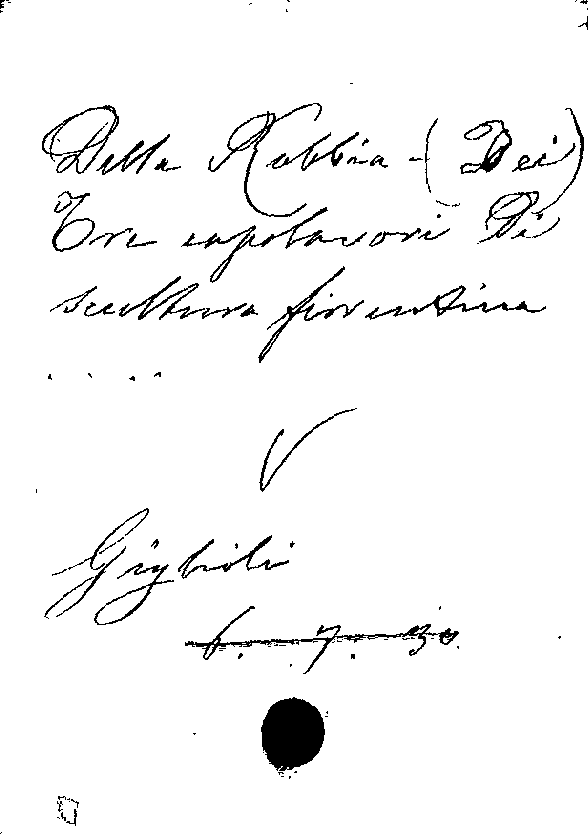 Della Robbia - (Dei)
Tre capolavori di
scultura fiorentina
. . . .
V
Giglioli
6. 7. 30